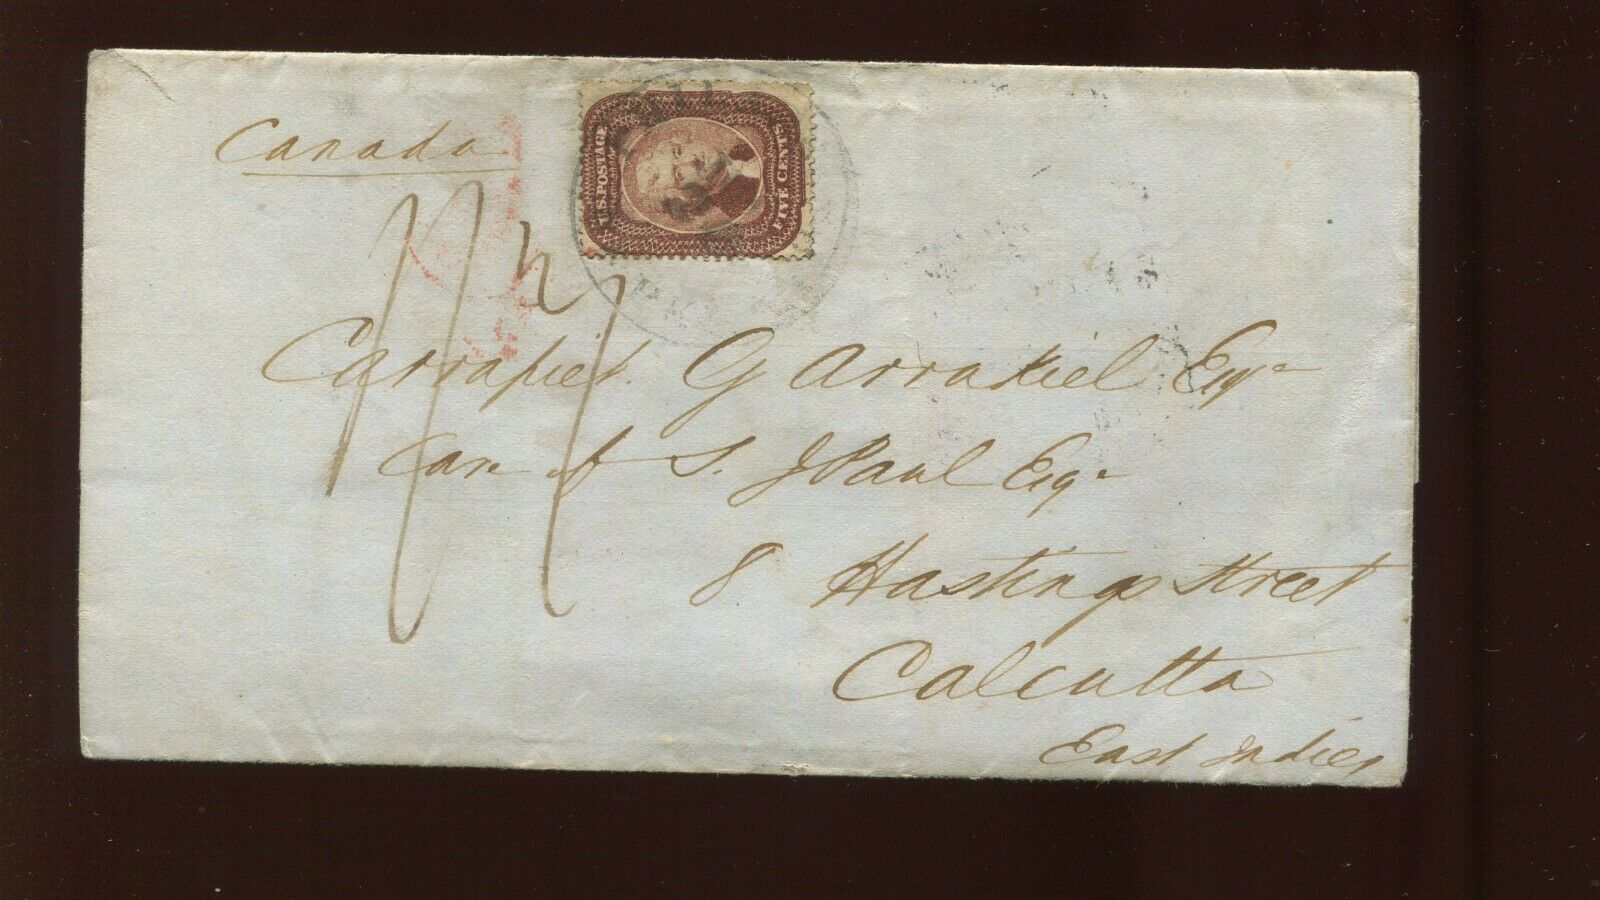 Canada
U.S. POSTAGE
FIVE CENTS
Carrapiet G Arrakiel Esqr
Care of S. J Paul Esqr
8 Hastings Street
Calcutta
East Indies